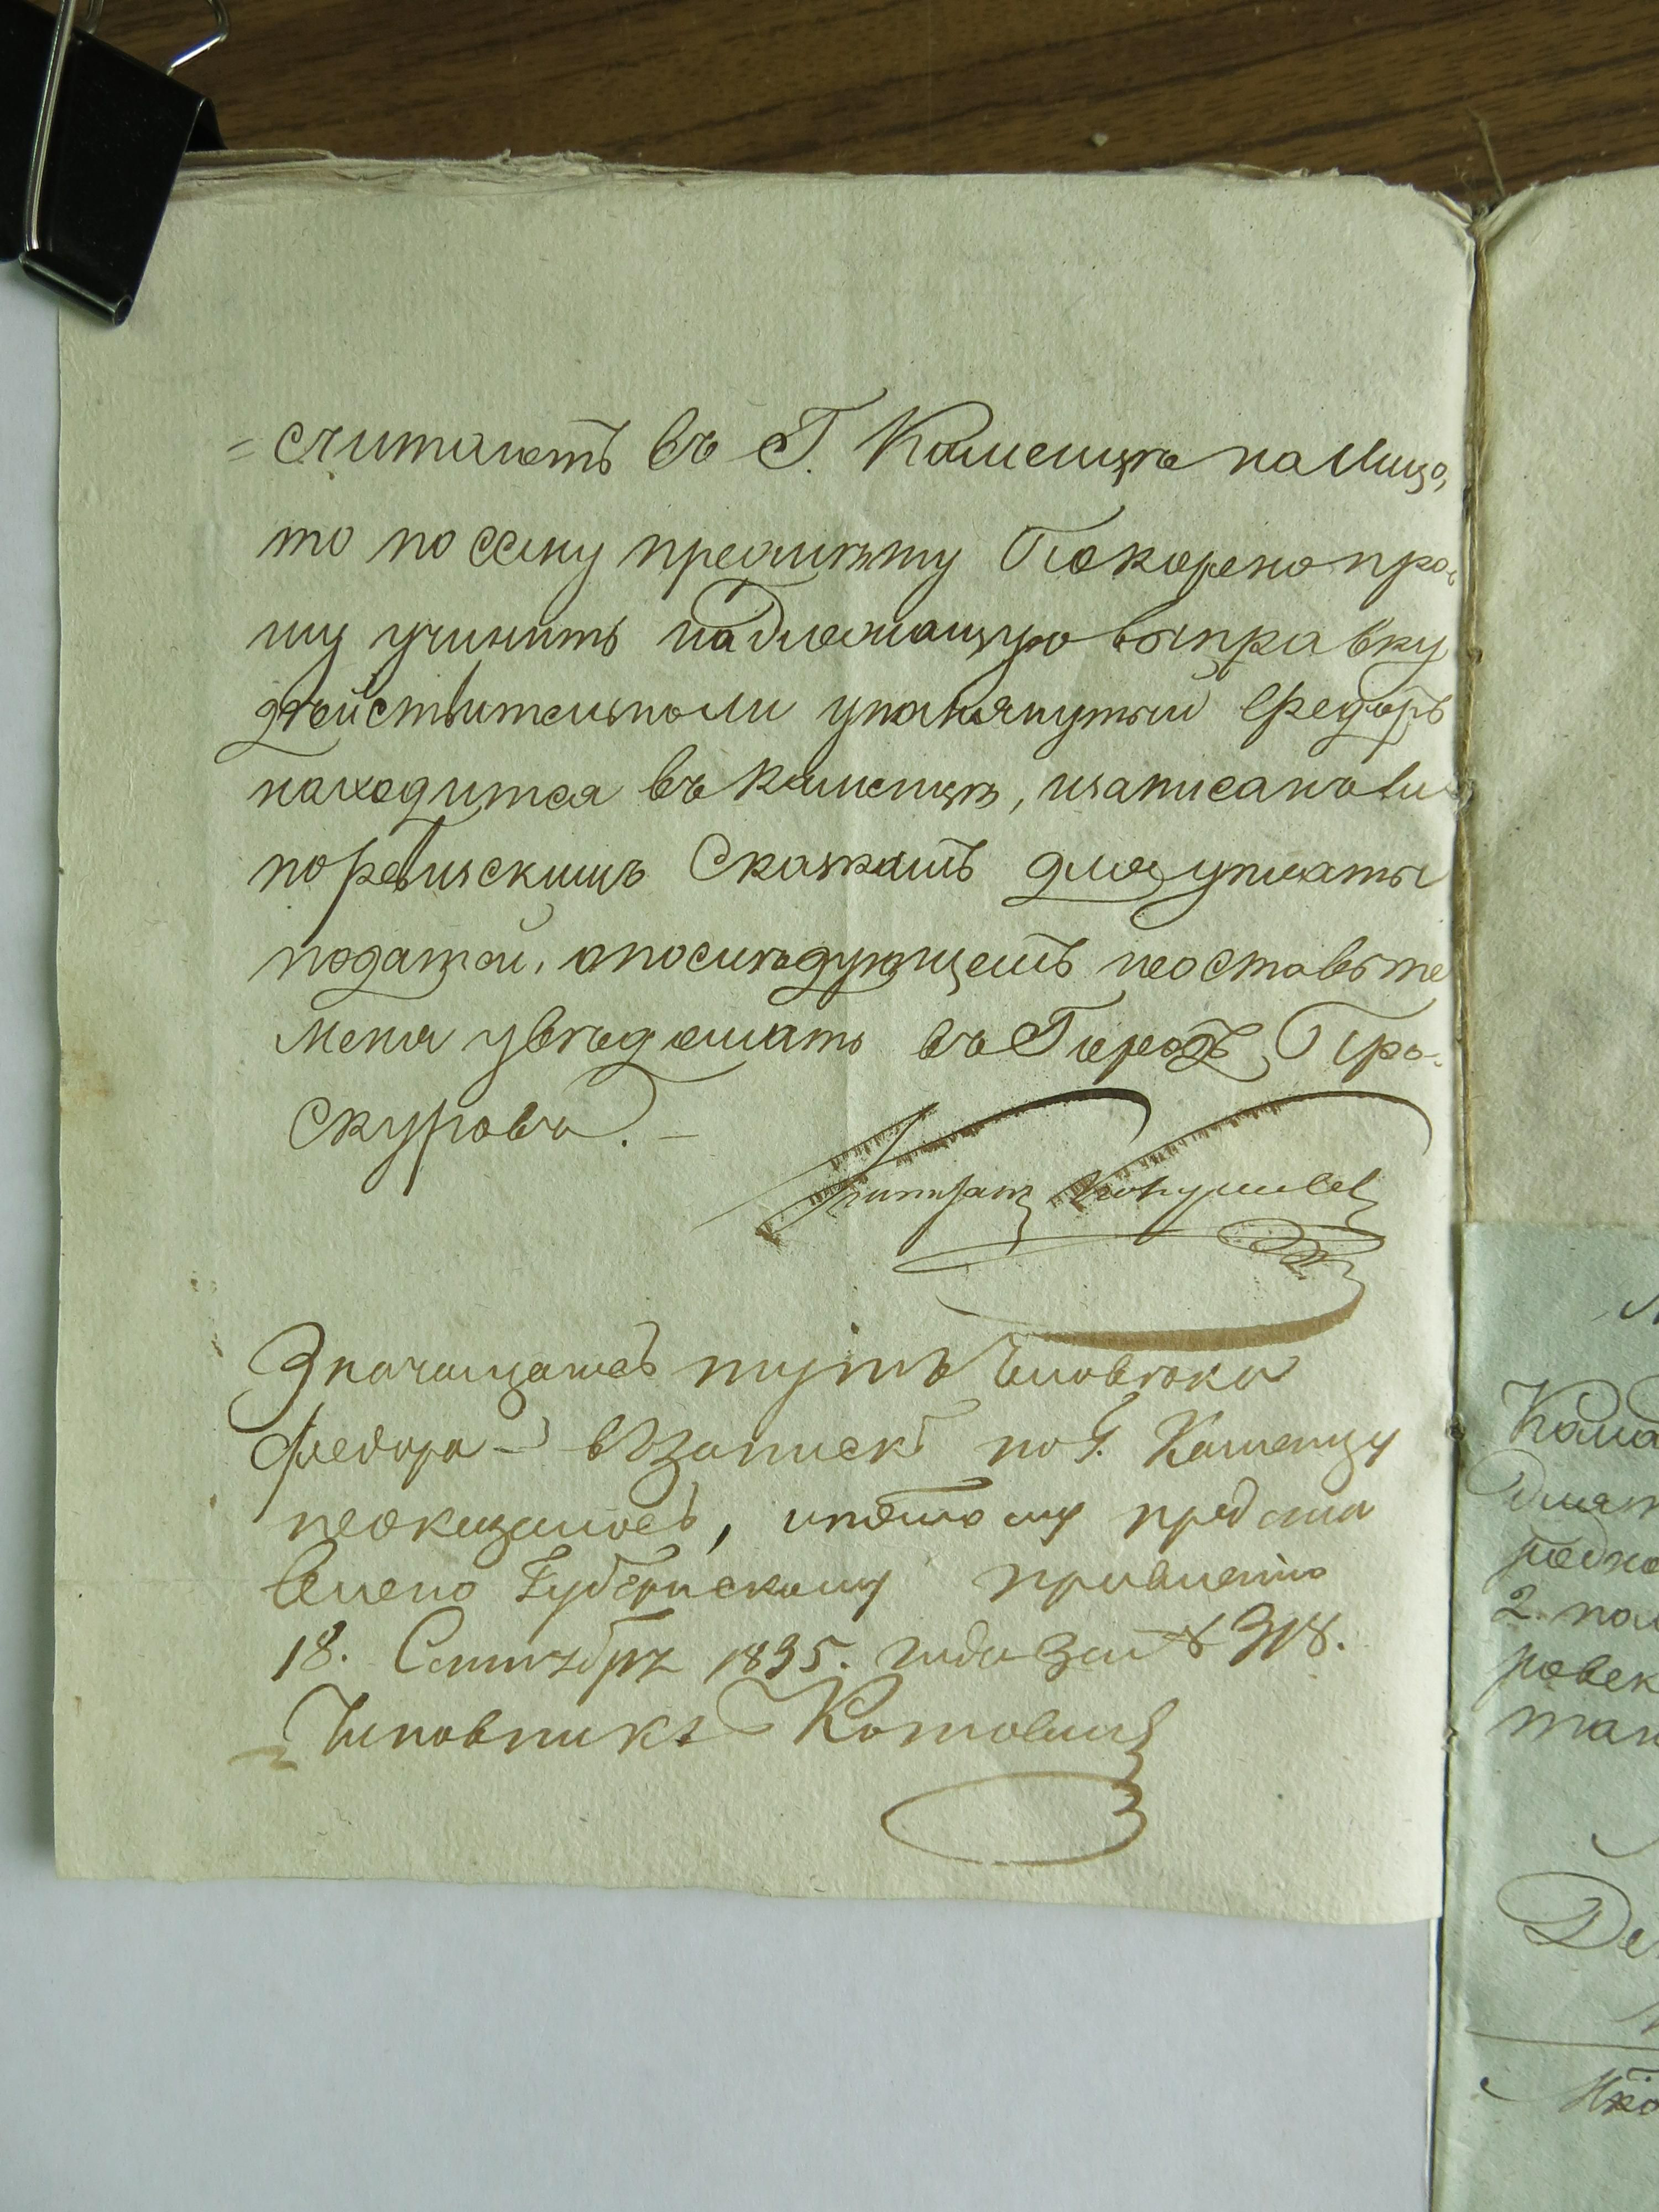 = считаютъ въ Г. Каменцѣ на лицо,
то по сему предмѣту Покорено про,
шу учинить надлежащую выправку
дѣйствительноли упомянутый Федоръ
находится въ каменцѣ, изаписанъ ли
поревизскимъ Сказкамъ для уплаты
податей, опослѣдующемъ неоставьте
меня увѣдомить въ Городъ Про-
скуровъ. —
Значущагось Человѣка
Федора — въ запискѣ по Г. Каменцу
неоказалось, ипотому предста
влено Губернскому правлению
18. Сентября 1835. года за № 318.
Чиновникъ Котович
Кама
Длят
родно
2. пол
ровек
тан
Де